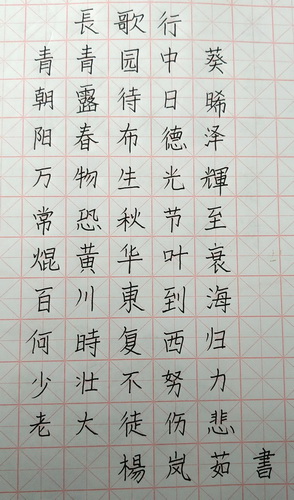 長歌行
青青园中葵
朝露待日晞
阳春布德泽
万物生光輝
常恐秋节至
焜黄华叶衰
百川東到海
何時复西归
少壮不努力
老大徒伤悲
楊岚茹書